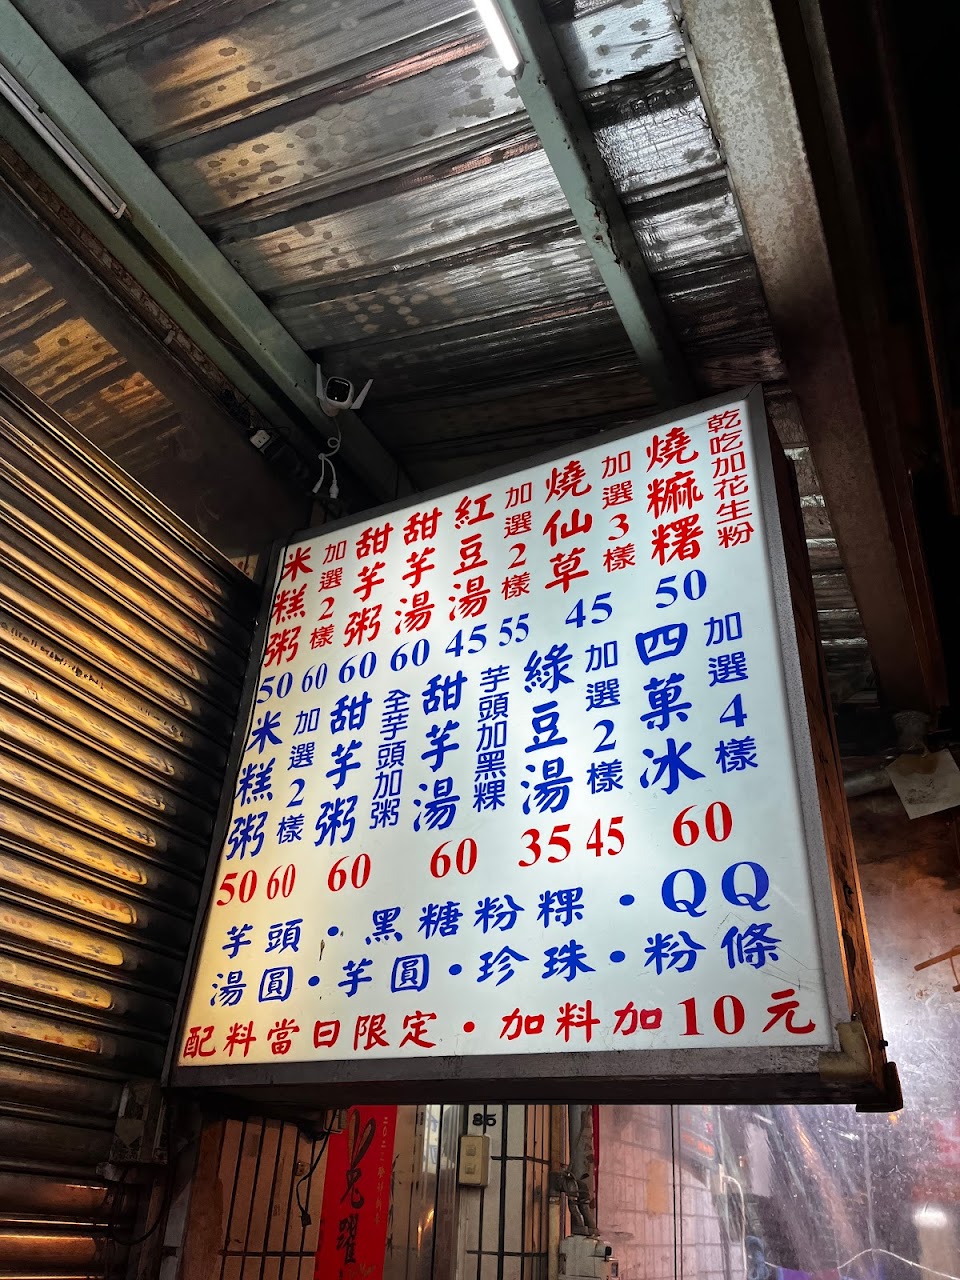 米糕粥
加選2樣
甜芋粥
甜芋湯
紅豆湯
加選2樣
燒仙草
加選3樣
燒麻糬
乾吃加花生粉
50 60 60 60 45 55 45 50
米糕粥
加選2樣
甜芋粥
全芋頭加粥
甜芋湯
芋頭加黑粿
綠豆湯
加選2樣
四菓冰
加選4樣
50 60 60 60 35 45 60
芋頭・黑糖粉粿・QQ
湯圓・芋圓・珍珠・粉條
配料當日限定・加料加10元
85
兔躍